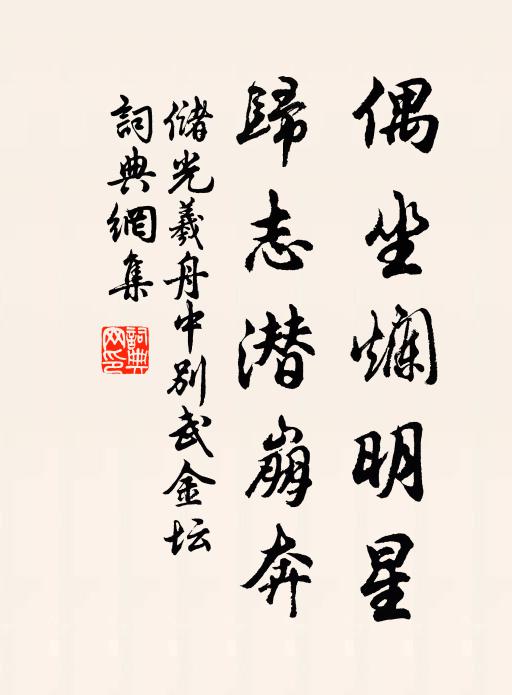 偶坐爛明星
歸志潜崩奔
儲光羲舟中别武金坛
詞典網集
詞典網印